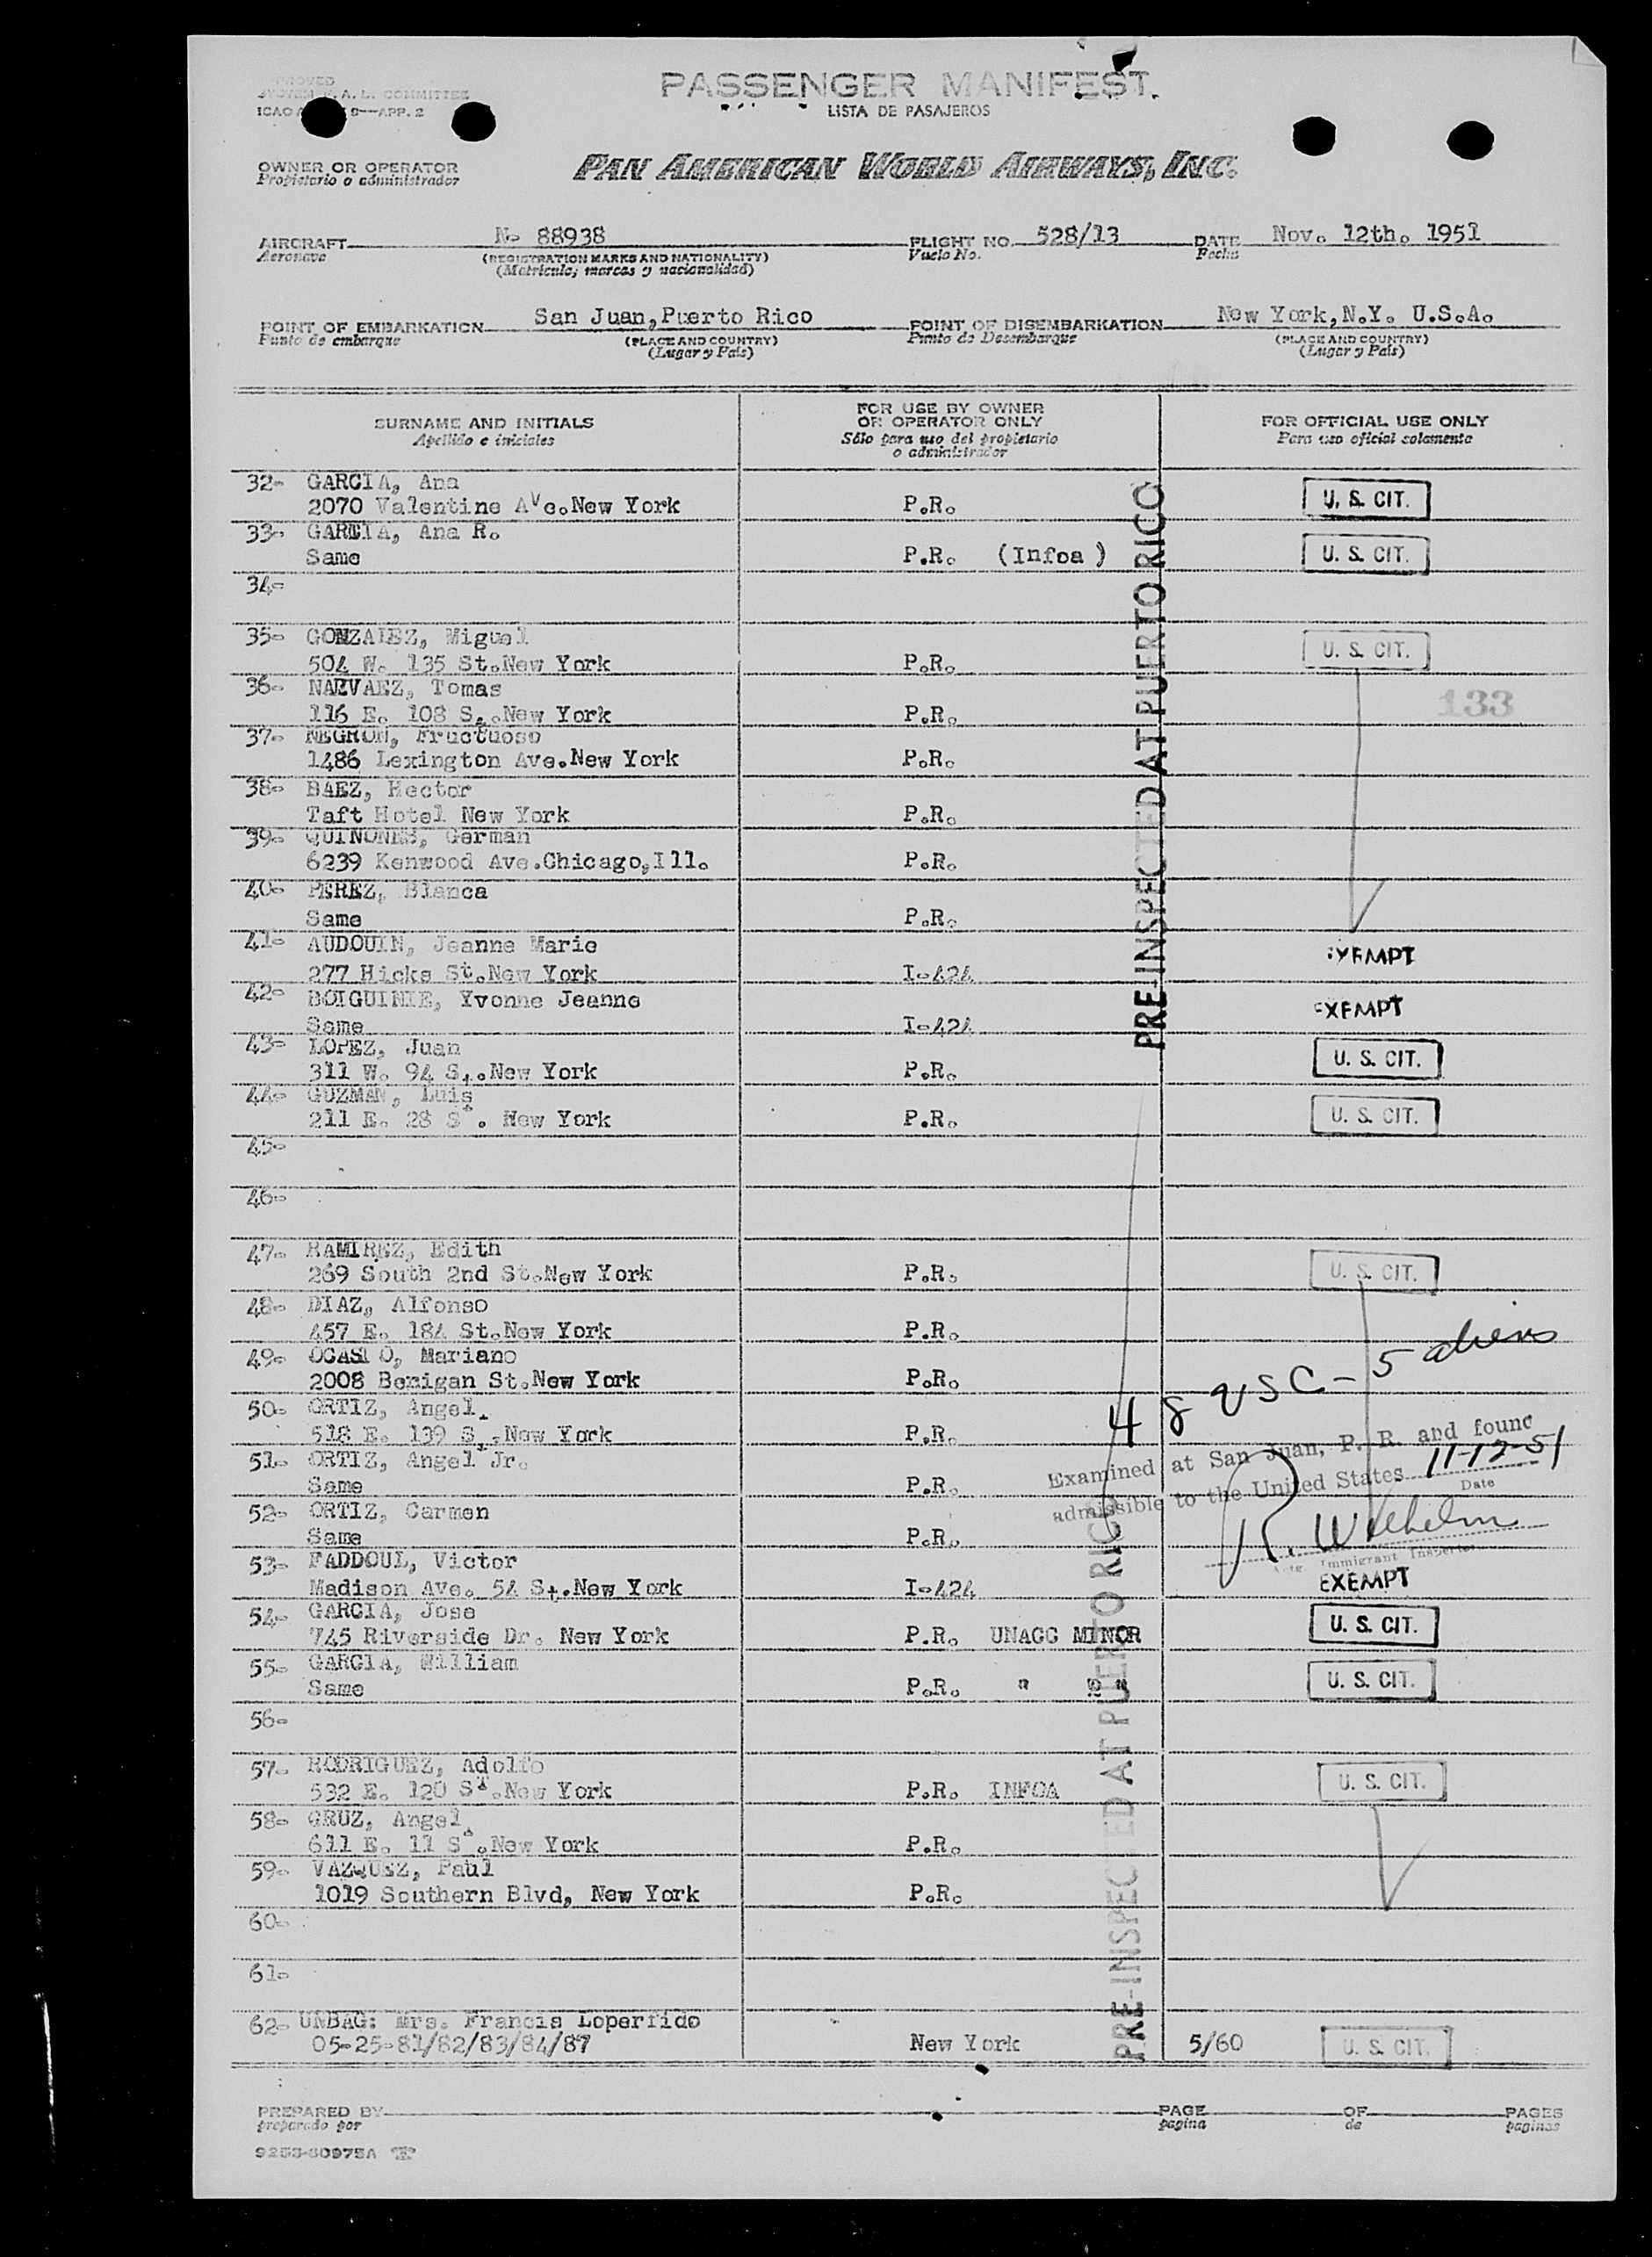 PASSENGER MANIFEST.
LISTA DE PASAJEROS
A. L. COMMITTEE
ICAO 9—APP. 2
OWNER OR OPERATOR
Propietario o administrador
PAN AMERICAN WORLD AIRWAYS, INC.
AIRCRAFT N- 88938 FLIGHT NO. 528/13 DATE Nov. 12th. 1951
Aeronave (REGISTRATION MARKS AND NATIONALITY) Vuelo No. Fecha
(Matricula; marcas y nacionalidad)
POINT OF EMBARKATION San Juan,Puerto Rico POINT OF DISEMBARKATION New York,N.Y. U.S.A.
Punto de embarque (PLACE AND COUNTRY) Punto de Desembarque (PLACE AND COUNTRY)
(Lugar y País) (Lugar y País)
SURNAME AND INITIALS FOR USE BY OWNER OR OPERATOR ONLY FOR OFFICIAL USE ONLY
Apellido e iniciales Sólo para uso del propietario o administrador Para uso oficial solamente
32- GARCIA, Ana
2070 Valentine Ave.New York P.R. U. S. CIT.
33- GARCIA, Ana R.
Same P.R. (Infoa ) U. S. CIT.
34-
35- GONZALEZ, Miguel
504 W. 135 St.New York P.R. U. S. CIT.
36- NARVAEZ, Tomas 133
116 E. 108 St.New York P.R.
37- NEGRON, Fructuoso
1486 Lexington Ave.New York P.R.
38- BAEZ, Hector
Taft Hotel New York P.R.
39- QUINONES, German
6239 Kenwood Ave.Chicago,Ill. P.R.
40- PEREZ, Blanca
Same P.R.
41- AUDOUIN, Jeanne Marie
277 Hicks St.New York I-424 EXEMPT
42- BOIGUINIE, Yvonne Jeanne
Same I-424 EXEMPT
PRE-INSPECTED AT PUERTO RICO
43- LOPEZ, Juan
311 W. 94 St.New York P.R. U. S. CIT.
44- GUZMAN, Luis
211 E. 28 St. New York P.R. U. S. CIT.
45-
46-
47- RAMIREZ, Edith
269 South 2nd St.New York P.R. U. S. CIT.
48- DIAZ, Alfonso
457 E. 184 St.New York P.R.
49- OCASIO, Mariano
2008 Benigan St.New York P.R.
48 USC - 5 aliens
50- ORTIZ, Angel
518 E. 139 St.New York P.R.
Examined at San Juan, P. R. and found
admissible to the United States 11-12-51
Date
51- ORTIZ, Angel Jr.
Same P.R.
52- ORTIZ, Carmen
Same P.R.
R. Wilhelm
Immigrant Inspector
53- FADDOUL, Victor
Madison Ave. 54 St.New York I-424 EXEMPT
54- GARCIA, Jose
745 Riverside Dr. New York P.R. UNACC MINOR U. S. CIT.
55- GARCIA, William
Same P.R. " " " U. S. CIT.
56-
57- RODRIGUEZ, Adolfo
532 E. 120 ST.New York P.R. INFOA U. S. CIT.
58- CRUZ, Angel
611 E. 11 St.New York P.R.
59- VAZQUEZ, Paul
1019 Southern Blvd, New York P.R.
60-
61-
62- UNBAG: Mrs. Francis Loperfido
05-25-81/82/83/84/87 New York 5/60 U. S. CIT.
PRE-INSPECTED AT PUERTO RICO
PREPARED BY PAGE OF PAGES
preparado por pagina de paginas